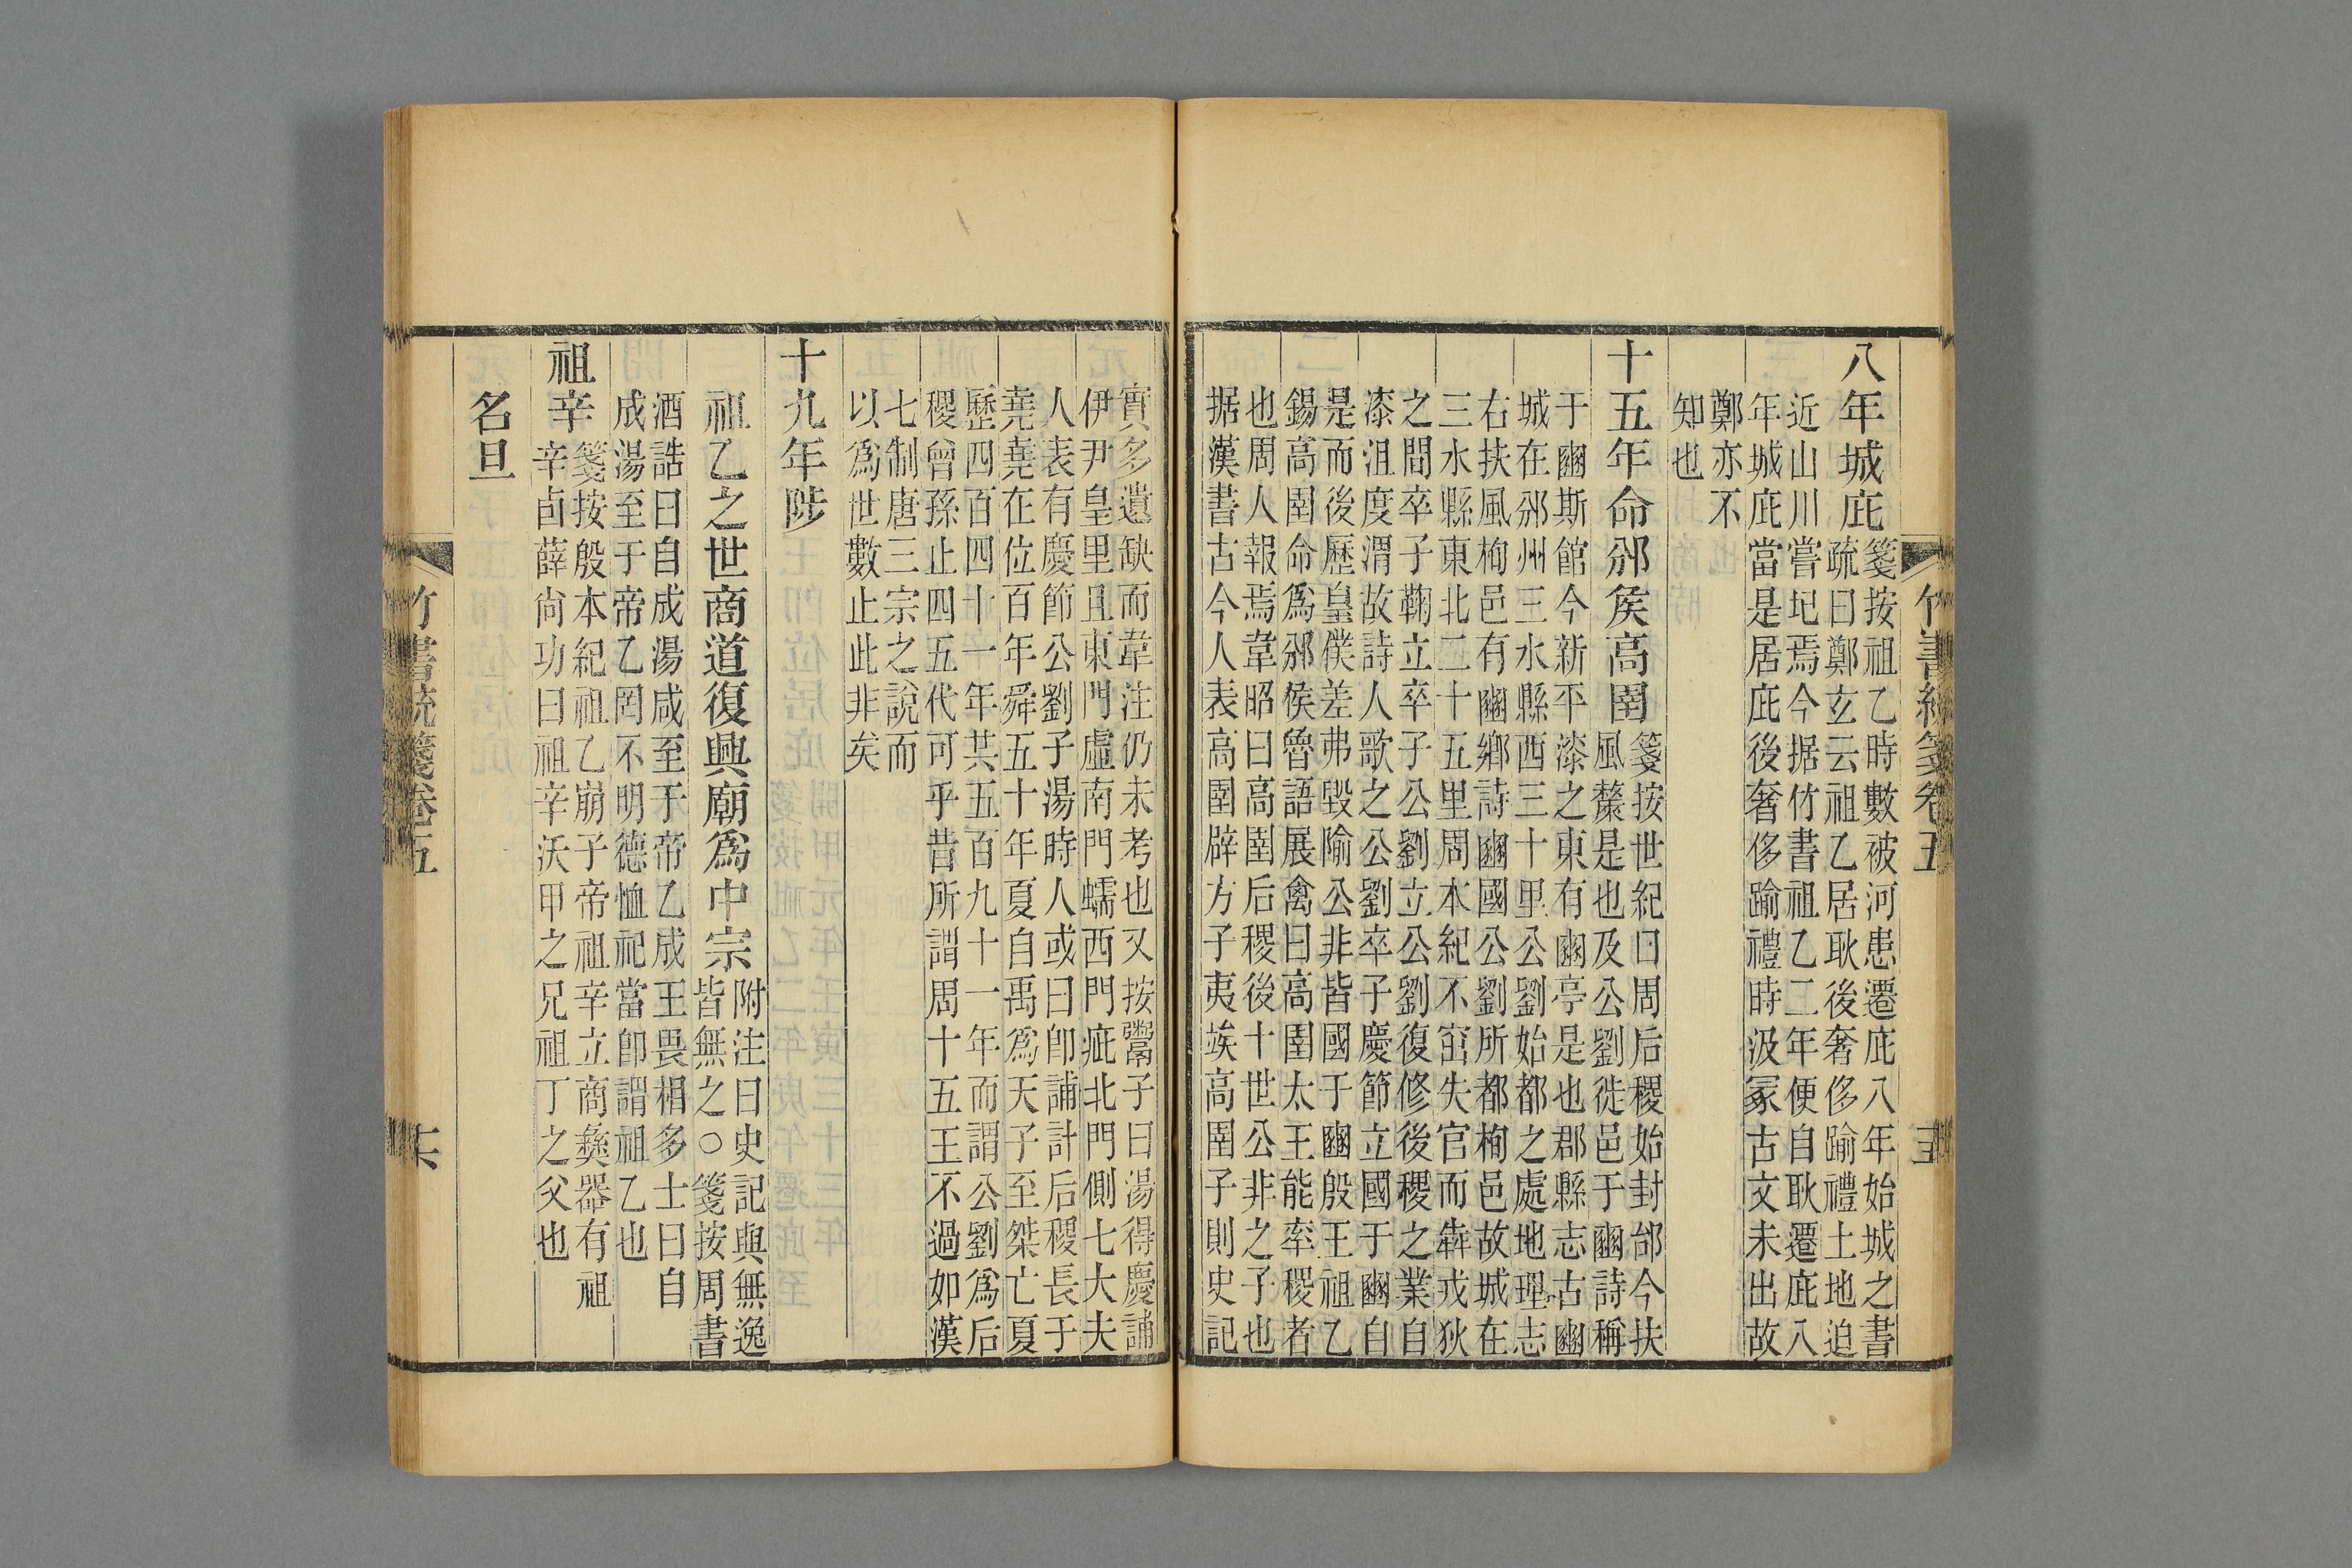 竹書統箋卷五
八年城庇
箋按祖乙時數被河患遷庇八年始城之書
疏曰鄭玄云祖乙居耿後奢侈踰禮土地迫
近山川嘗圮焉今据竹書祖乙二年便自耿遷庇八
年城庇當是居庇後奢侈踰禮時汲冢古文未出故
鄭亦不
知也
十五年命邠矦高圉
箋按世紀曰周后稷始封邰今扶
風斄是也及公劉徙邑于豳詩稱
于豳斯館今新平漆之東有豳亭是也郡縣志古豳
城在邠州三水縣西三十里公劉始都之處地理志
右扶風栒邑有豳鄉詩豳國公劉所都栒邑故城在
三水縣東北二十五里周本紀不窋失官而犇戎狄
之間卒子鞠立卒子公劉立公劉復修後稷之業自
漆沮度渭故詩人歌之公劉卒子慶節立國于豳自
是而後歷皇僕差弗毀隃公非皆國于豳殷王祖乙
錫高圉命爲邠侯魯語展禽曰高圉太王能率稷者
也周人報焉韋昭曰高圉后稷後十世公非之子也
据漢書古今人表高圉辟方子夷竢高圉子則史記
實多遺缺而韋注仍未考也又按鬻子曰湯得慶誧
伊尹皇里且東門虛南門蠕西門疵北門側七大夫
人表有慶節公劉子湯時人或曰卽誧計后稷長于
堯堯在位百年舜五十年夏自禹爲天子至桀亡夏
歷四百四十一年共五百九十一年而謂公劉爲后
稷曾孫止四五代可乎昔所謂周十五王不過如漢
七制唐三宗之說而
以爲世數止此非矣
十九年陟
祖乙之世商道復興廟爲中宗
附注曰史記與無逸
皆無之○箋按周書
酒誥曰自成湯咸至于帝乙成王畏相多士曰自
成湯至于帝乙罔不明德恤祀當卽謂祖乙也
祖辛
箋按殷本紀祖乙崩子帝祖辛立商彝器有祖
辛卣薛尚功曰祖辛沃甲之兄祖丁之父也
名旦
竹書統箋卷五